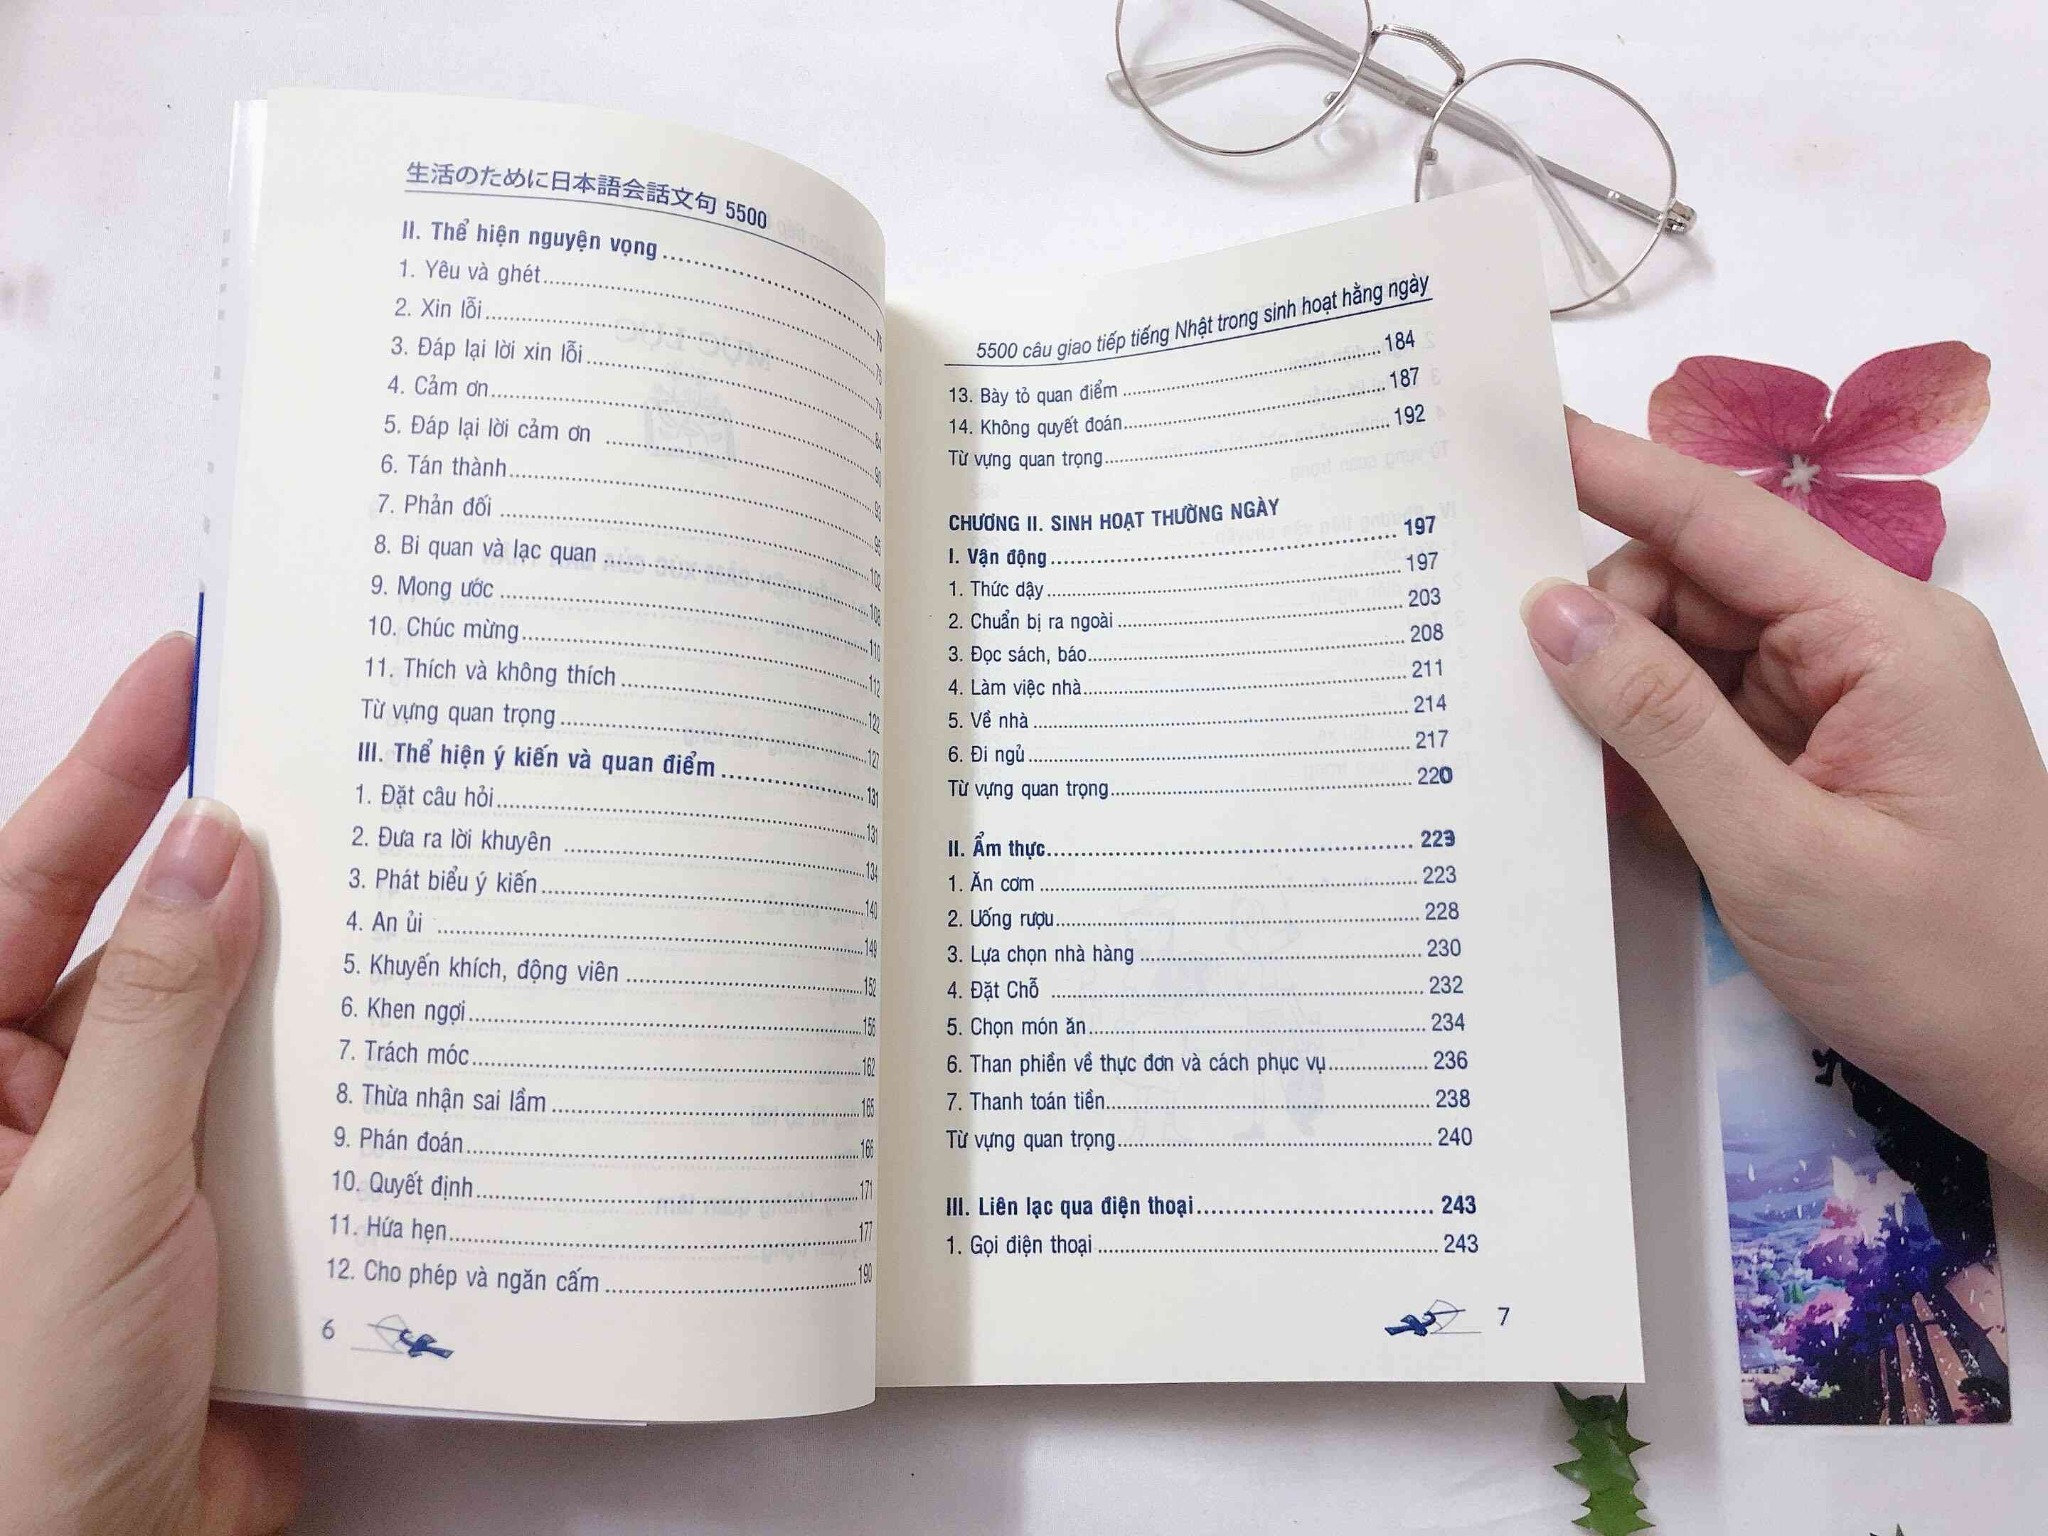 生活のために日本語会話文句 5500
II. Thể hiện nguyện vọng........ 75
1. Yêu và ghét........ 75
2. Xin lỗi........ 79
3. Đáp lại lời xin lỗi........ 84
4. Cảm ơn........ 90
5. Đáp lại lời cảm ơn ........ 93
6. Tán thành........ 95
7. Phản đối ........ 102
8. Bi quan và lạc quan ........ 108
9. Mong ước ........ 110
10. Chúc mừng........ 112
11. Thích và không thích ........ 122
Từ vựng quan trọng ........ 127
III. Thể hiện ý kiến và quan điểm ........ 131
1. Đặt câu hỏi........ 131
2. Đưa ra lời khuyên ........ 134
3. Phát biểu ý kiến........ 140
4. An ủi ........ 149
5. Khuyến khích, động viên ........ 152
6. Khen ngợi........ 156
7. Trách móc........ 162
8. Thừa nhận sai lầm ........ 165
9. Phán đoán........ 166
10. Quyết định........ 171
11. Hứa hẹn........ 177
12. Cho phép và ngăn cấm ........ 190
6
5500 câu giao tiếp tiếng Nhật trong sinh hoạt hằng ngày
13. Bày tỏ quan điểm ........ 184
14. Không quyết đoán........ 187
Từ vựng quan trọng........ 192
CHƯƠNG II. SINH HOẠT THƯỜNG NGÀY
I. Vận động........ 197
1. Thức dậy........ 197
2. Chuẩn bị ra ngoài ........ 203
3. Đọc sách, báo........ 208
4. Làm việc nhà........ 211
5. Về nhà ........ 214
6. Đi ngủ ........ 217
Từ vựng quan trọng........ 220
II. Ẩm thực........ 223
1. Ăn cơm ........ 223
2. Uống rượu........ 228
3. Lựa chọn nhà hàng ........ 230
4. Đặt Chỗ ........ 232
5. Chọn món ăn........ 234
6. Than phiền về thực đơn và cách phục vụ........ 236
7. Thanh toán tiền........ 238
Từ vựng quan trọng........ 240
III. Liên lạc qua điện thoại........ 243
1. Gọi điện thoại ........ 243
7